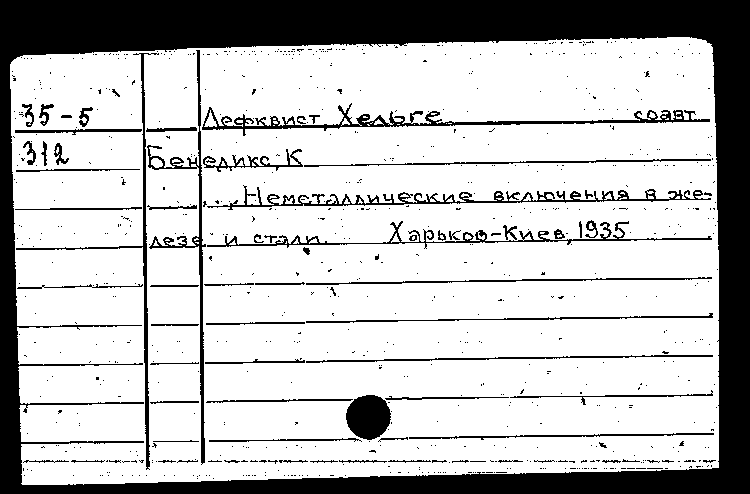 35-5 Лефквист, Хельге соавт.
312 Бенедикс, К
... Неметаллические включения в же-
лезе и стали. Харьков-Киев, 1935